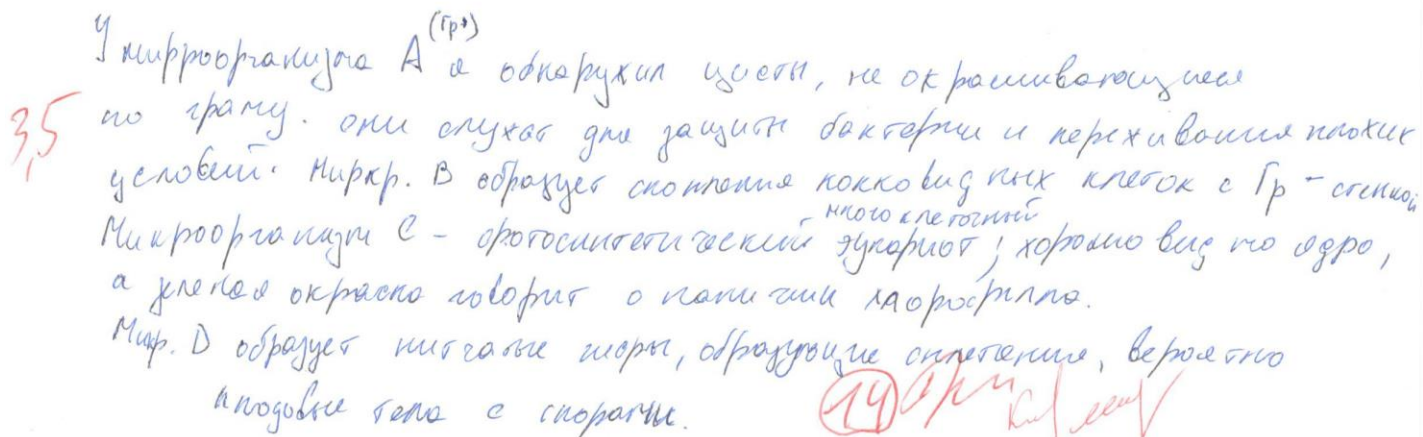 (Гр+)
У микроорганизма А я обнаружил цисты, не окрашивающиеся
3,5
по граму. они служат для защиты бактерии и переживания плохих
условий. Микр. В образует скопления кокковидных клеток с Гр - стенкой
многоклеточный
Микроорганизм С - фотосинтетический эукариот; хорошо видно ядро,
а зеленая окраска говорит о наличии хлорофилла.
Микр. D образует нитчатые, образующие сплетения, вероятно
плодовые тела с спорами.
14